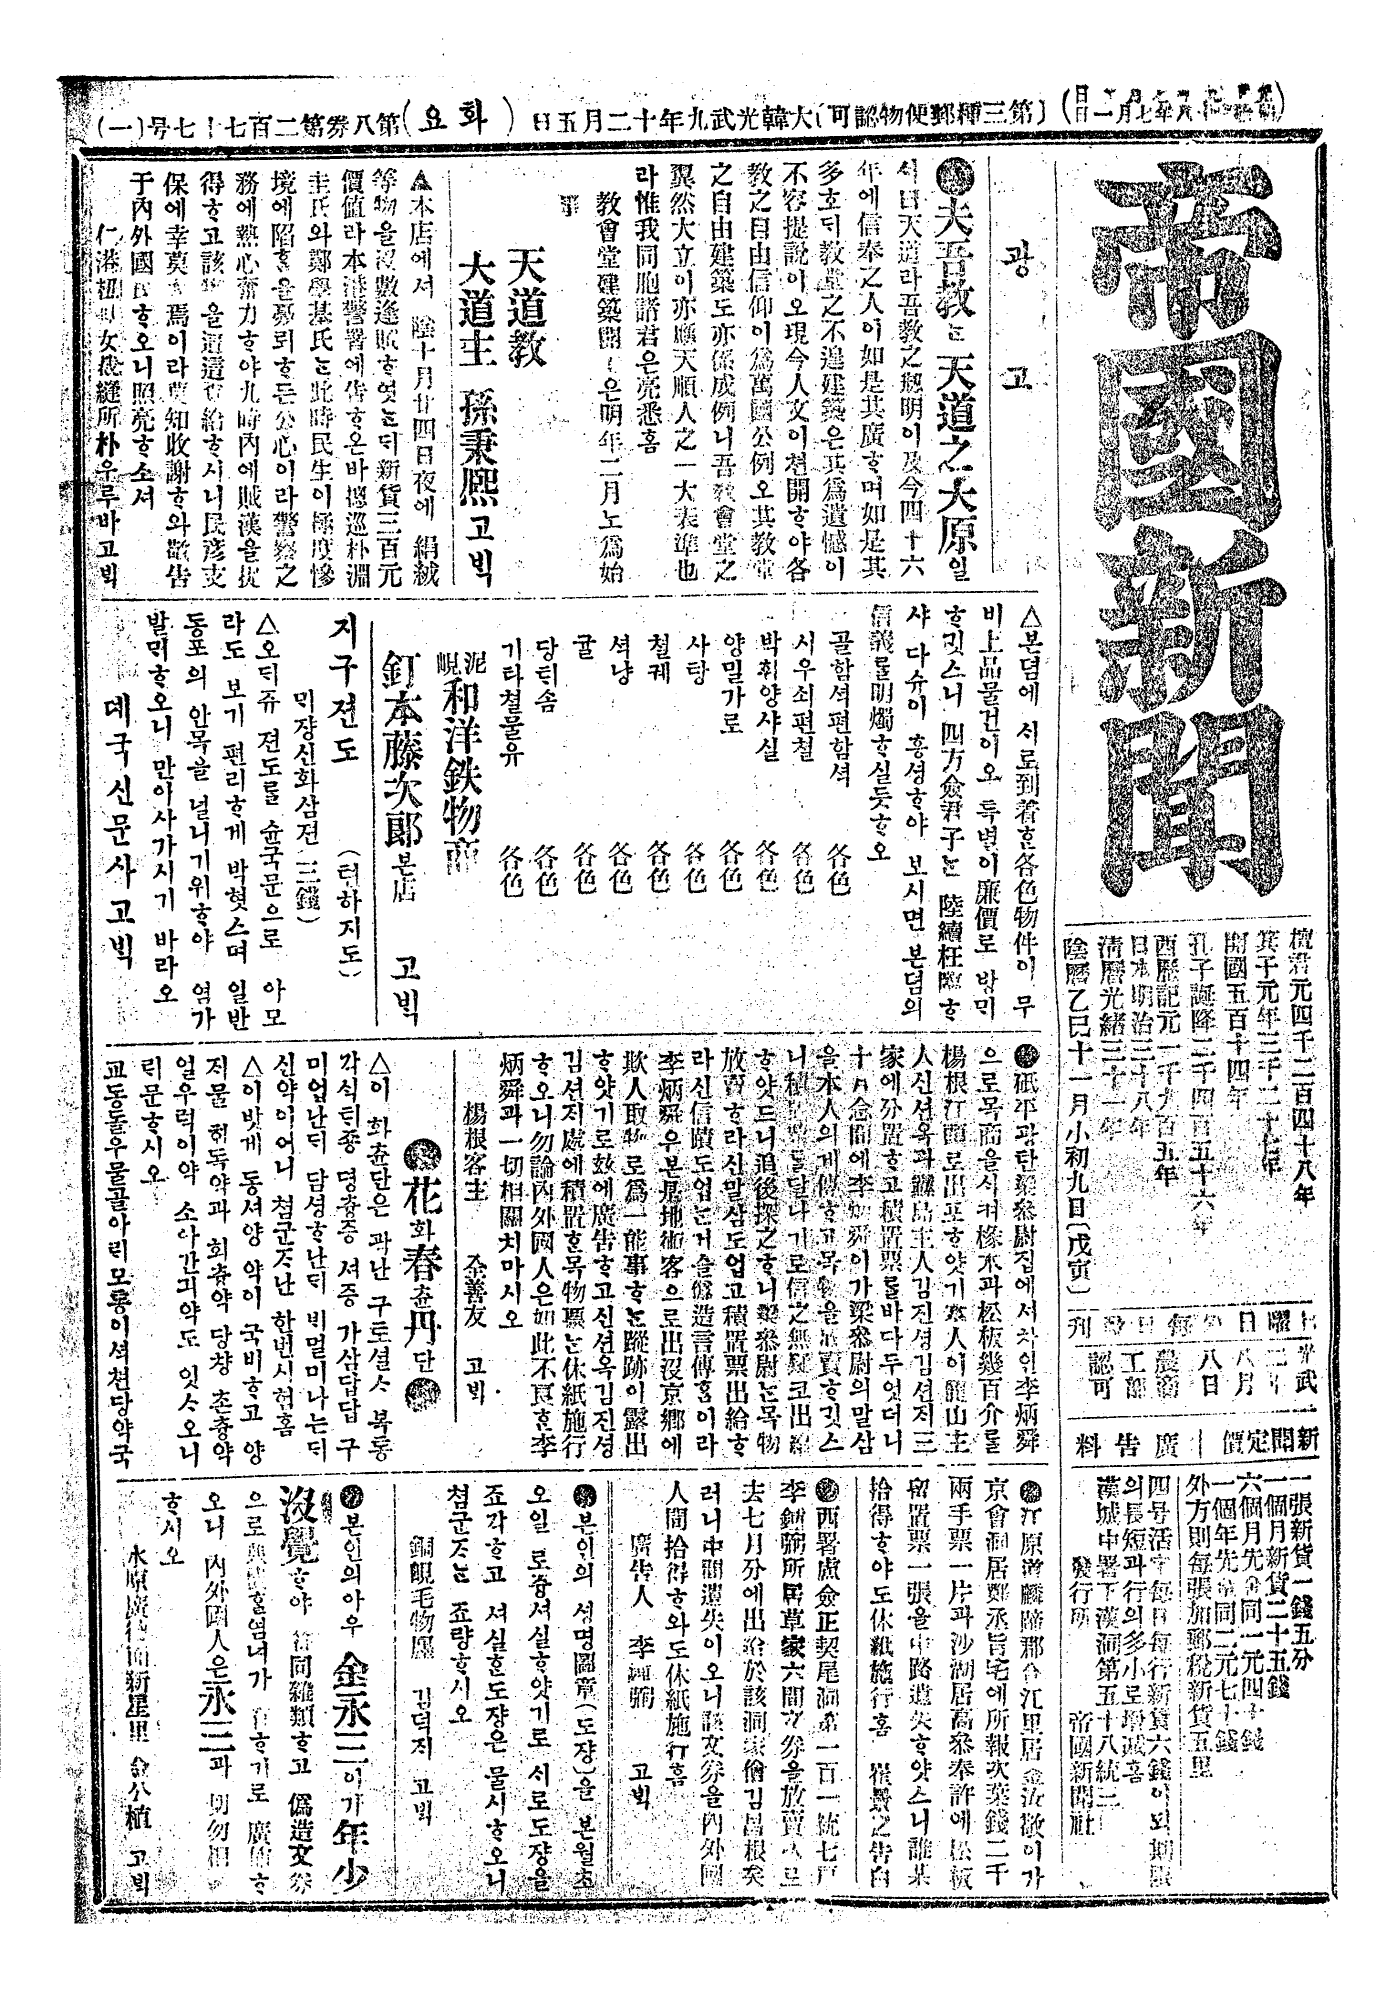 (一) 第八券第二百七十七号 (화요) 大韓光武九年十二月五日 (第三種郵便物認可)
帝國新聞
檀君元年四千二百四十八年
箕子元年三千二十七年
開國五百十四年
孔子誕降二千四百五十六年
西曆記元一千九百五年
日本明治三十八年
清曆光緖三十一年
陰曆乙巳十一月小初九日(戊寅)
新聞定價 廣告料
一張新貨一錢五分
一個月新貨二十五錢
六個月先金同一元四十錢
一個年先金同二元七十錢
外方則每張加郵稅新貨五里
四号活字每日每行新貨六錢이되期限
의長短과行의多小로增减홈
漢城中署下漢洞第五十八統二
發行所 帝國新聞社
광고
夫吾敎는 天道之大原일
시曰天道라吾敎之刱明이及今四十六
年에信奉之人이如是其廣ᄒᆞ며如是其
多호ᄃᆡ敎堂之不遑建築은其爲遺憾이
不容提說이오現今人文이闡開ᄒᆞ야各
敎之自由信仰이爲萬國公例오其敎堂
之自由建築도亦係成例니吾敎會堂之
翼然大立이亦應天順人之一大表準也
라惟我同胞諸君은亮悉홈
敎會堂建築開工은明年二月노爲始
事
天道敎
大道主 孫秉熙 고ᄇᆡᆨ
▲本店에셔 陰十月廿四日夜에 絹絨
等物을沒數逢賊ᄒᆞ엿ᄂᆞᆫᄃᆡ新貨三百元
價値라本港警署에告ᄒᆞ온바摠巡朴淵
圭氏와鄭學基氏ᄂᆞᆫ此時民生이極度慘
境에陷ᄒᆞᆷ을憂慮ᄒᆞ든公心이라警察之
務에熱心奮力ᄒᆞ야九時內에賊漢을捉
得ᄒᆞ고該物을這這查給ᄒᆞ시니民產支
保에幸莫大焉이라莫知收謝ᄒᆞ와敬告
于內外國民ᄒᆞ오니照亮ᄒᆞ소셔
仁港杻峴女裁縫所朴우루바고ᄇᆡᆨ
△본뎜에 시로到着ᄒᆞᆫ各色物件이 무
비上品물건이오 특별이廉價로 방ᄆᆡ
ᄒᆞ깃스니 四方僉君子ᄂᆞᆫ 陸續枉臨ᄒᆞ
샤 다슈이 흥셩ᄒᆞ야 보시면 본뎜의
信義를明燭ᄒᆞ실듯ᄒᆞ오
골함셕편함셕 各色
시우쇠편철 各色
박휘양샤실 各色
양밀가로 各色
사탕 各色
철궤 各色
셕냥 各色
귤 各色
당ᄐᆡ솜 各色
기타철물유 各色
泥峴 和洋鉄物商
釘本藤次郞 본店 고ᄇᆡᆨ
지구젼도 (텬하지도)
ᄆᆡ쟝신화삼젼(三錢)
△오ᄃᆡ쥬 젼도를 슌국문으로 아모
라도 보기 편리ᄒᆞ게 박혓스며 일반
동포의 안목을 널니기위ᄒᆞ야 염가
발ᄆᆡᄒᆞ오니 만이사가시기 바라오
뎨국신문사고ᄇᆡᆨ
砥平광탄梁參尉집에셔차인李炳舜
으로목商을시겨椽木과松板幾百介를
楊根江頭로出포ᄒᆞ얏기客人이龍山主
人신션옥과纛島主人김진셩김션지三
家에分置ᄒᆞ고積置票를바다두엇더니
十月念間에李炳舜이가梁參尉의말삼
을本人의게傳ᄒᆞ고목物을放賣ᄒᆞ깃스
니積置票를달나기로信之無疑코出給
ᄒᆞ얏드니追後探之ᄒᆞ니梁參尉ᄂᆞᆫ목物
放賣ᄒᆞ라신말삼도업고積置票出給ᄒᆞ
라신信蹟도업ᄂᆞᆫ거슬僞造言傳홈이라
李炳舜우본是地術客으로出沒京鄕에
欺人取物로爲一能事ᄒᆞᄂᆞᆫ蹤跡이露出
ᄒᆞ얏기로玆에廣告ᄒᆞ고신션옥김진셩
김션지處에積置ᄒᆞᆫ목物票ᄂᆞᆫ休紙施行
ᄒᆞ오니勿論內外國人은如此不良ᄒᆞᆫ李
炳舜과一切相關치마시오
楊根客主 全善友 고ᄇᆡᆨ
花화春츈丹단
△이 화츈단은 곽난 구토셜ᄉᆞ 복통
각식ᄃᆡ종 명츙증 셔증 가삼답답 구
미업난ᄃᆡ 담셩ᄒᆞ난ᄃᆡ 비멀미나는ᄃᆡ
신약이어니 쳠군ᄌᆞ난 한번시험홈
△이밧게 동셔양 약이 국비ᄒᆞ고 양
저물 ᄒᆡ독약과 회츙약 당챵 츈츙약
얼우럭이약 소아간긔약도 잇ᄉᆞ오니
ᄅᆡ문ᄒᆞ시오
교동돌우물골아ᄅᆡ모통이셔텬당약국
江原道麟蹄郡合江里居金汝敬이가
京會洞居鄭丞旨宅에所報次葉錢二千
兩手票一片과沙湖居高參奉許에松板
留置票一張을中路遺失ᄒᆞ얏스니誰某
拾得ᄒᆞ야도休紙施行홈 崔景之告白
西署盧僉正契尾洞第一百一統七戶
李鍾𩾇所居草家六間文券을放賣次로
去七月分에出給於該洞家儈김昌根矣
러니中間遺失이오니該文券을內外國
人間拾得ᄒᆞ와도休紙施行홈
廣告人 고ᄇᆡᆨ
본인의 셩명圖章(도쟝)을 본월초
오일 로즁셔실ᄒᆞ얏기로 시로도쟝을
죠각ᄒᆞ고 셔실ᄒᆞᆫ도쟝은 물시ᄒᆞ오니
쳠군ᄌᆞᄂᆞᆫ 죠량ᄒᆞ시오
銅峴毛物廛 김덕지 고ᄇᆡᆨ
본인의아우 金永三이가 年少
沒覺ᄒᆞ야 符同雜類ᄒᆞ고 僞造文券
으로 염녀가 有ᄒᆞ기로 廣佈ᄒᆞ
오니 內外國人은 永三과 一切勿相
ᄒᆞ시오
水原 新星里 金公植 고ᄇᆡᆨ